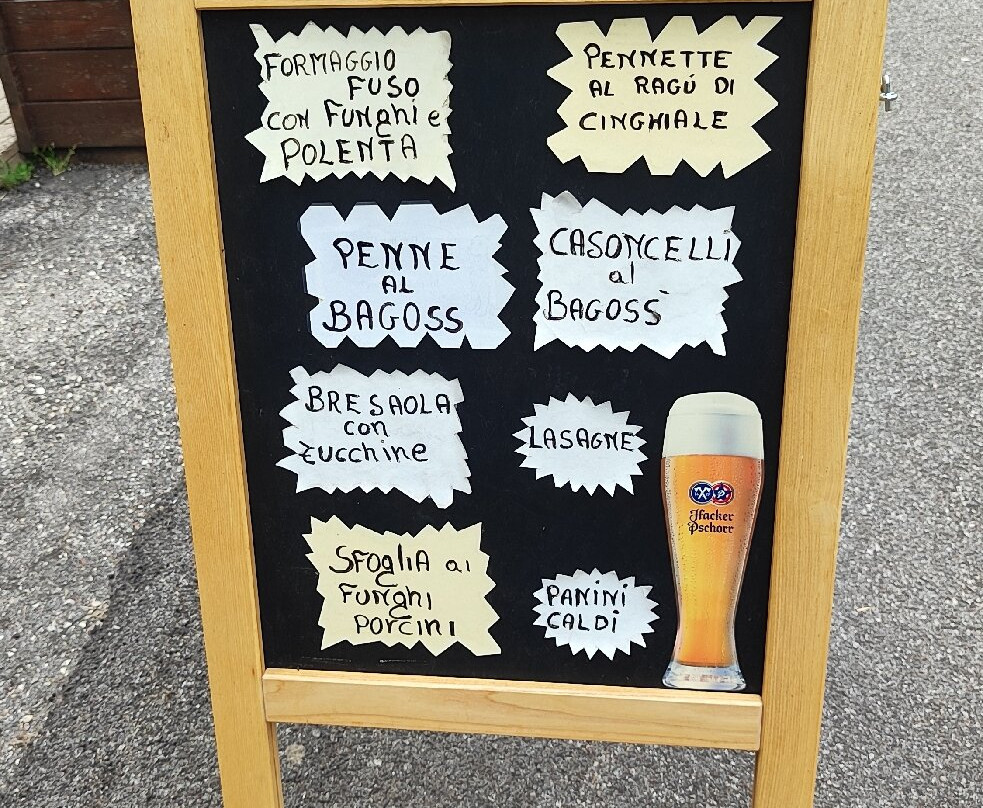 FORMAGGIO
FUSO
CON FUNghi e
POLENTA
PENNETTE
AL RAGÚ DI
CINGHIALE
PENNE
AL
BAGOSS
CASONCELLI
al
BAGOSS
BRESAOLA
con
Zucchine
LASAGNE
SFOgliA ai
FUNghi
PORCINI
PANINI
CALDI
Hacker
Pschorr